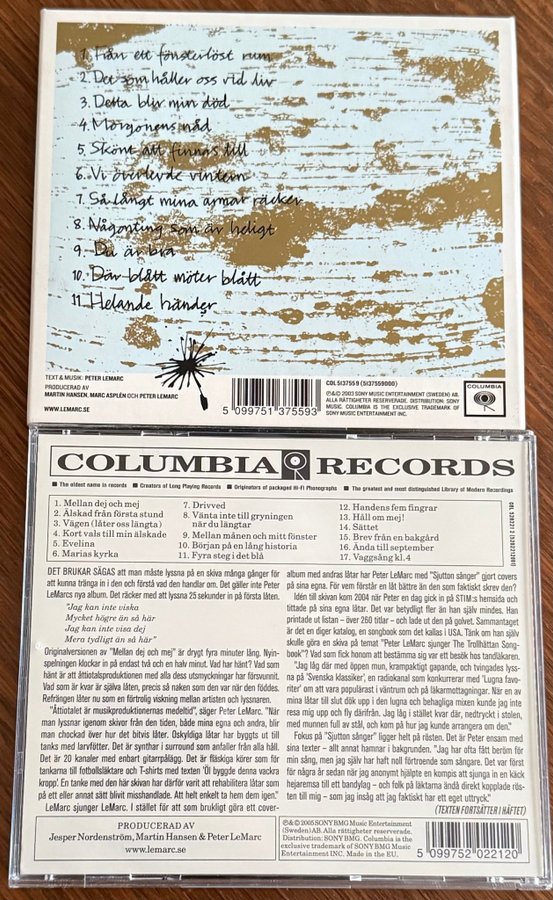 1. Från ett fönsterlöst rum
2. Det som håller oss vid liv
3. Detta blir min död
4. Morgonens nåd
5. Skönt att finnas till
6. Vi överlevde vintern
7. Så långt mina armar räcker
8. Någonting som är heligt
9. Du är bra
10. Där blått möter blått
11. Helande händer
TEXT & MUSIK: PETER LEMARC
PRODUCERAD AV
MARTIN HANSEN, MARC ASPLÉN OCH PETER LEMARC
WWW.LEMARC.SE
5 099751 375593
COL 513755 9 (5137559000)
℗&© 2003 SONY MUSIC ENTERTAINMENT (SWEDEN) AB.
ALLA RÄTTIGHETER RESERVERADE. DISTRIBUTION: SONY
MUSIC. COLUMBIA IS THE EXCLUSIVE TRADEMARK OF
SONY MUSIC ENTERTAINMENT INC.
COLUMBIA
COLUMBIA RECORDS
■ The oldest name in records ■ Creators of Long Playing Records ■ Originators of packaged Hi-Fi Phonographs ■ The greatest and most distinguished Library of Modern Recordings
1. Mellan dej och mej
2. Älskad från första stund
3. Vägen (låter oss längta)
4. Kort vals till min älskade
5. Evelina
6. Marias kyrka
7. Drivved
8. Vänta inte till gryningen
när du längtar
9. Mellan månen och mitt fönster
10. Början på en lång historia
11. Fyra steg i det blå
12. Handens fem fingrar
13. Håll om mej!
14. Sättet
15. Brev från en bakgård
16. Ända till september
17. Vaggsång kl.4
DET BRUKAR SÄGAS att man måste lyssna på en skiva många gånger för
att kunna tränga in i den och förstå vad den handlar om. Det gäller inte Peter
LeMarcs nya album. Det räcker med att lyssna 25 sekunder in på första låten.
"Jag kan inte viska
Mycket högre än så här
Jag kan inte visa dej
Mera tydligt än så här"
Originalversionen av "Mellan dej och mej" är drygt fyra minuter lång. Nyin-
spelningen klockar in på endast två och en halv minut. Vad har hänt? Vad som
hänt är att åttiotalsproduktionen med alla dess utsmyckningar har försvunnit.
Vad som är kvar är själva låten, precis så naken som den var när den föddes.
Refrängen låter nu som en förtrolig viskning mellan artisten och lyssnaren.
"Åttiotalet är musikproduktionernas medeltid", säger Peter LeMarc. "När
man lyssnar igenom skivor från den tiden, både mina egna och andra, blir
man chockad över hur det bitvis låter. Oskyldiga låtar har byggts ut till
tanks med larvfötter. Det är synthar i surround som anfaller från alla håll.
Det är 20 kanaler med enbart gitarrpålägg. Det är fläskiga körer som för
tankarna till fotbollsläktare och T-shirts med texten 'Öl byggde denna vackra
kropp'. En tanke med den här skivan har därför varit att rehabilitera låtar som
på ett eller annat sätt blivit misshandlade. Att helt enkelt ta hem dem igen."
LeMarc sjunger LeMarc. I stället för att som brukligt göra ett cover-
album med andras låtar har Peter LeMarc med "Sjutton sånger" gjort covers
på sina egna. För vem förstår en låt bättre än den som faktiskt skrev den?
Idén till skivan kom 2004 när Peter en dag gick in på STIM:s hemsida och
tittade på sina egna låtar. Det var betydligt fler än han själv mindes. Han
printade ut listan – över 260 titlar – och lade ut den på golvet. Sammantaget
är det en diger katalog, en songbook som det kallas i USA. Tänk om han själv
skulle göra en skiva på temat "Peter LeMarc sjunger The Trollhättan Song-
book"? Vad som fick honom att bestämma sig var ett besök hos tandläkaren.
"Jag låg där med öppen mun, krampaktigt gapande, och tvingades lyssna
på 'Svenska klassiker', en radiokanal som konkurrerar med 'Lugna favo-
riter' om att vara populärast i väntrum och på läkarmottagningar. När en av
mina låtar till slut dök upp i den lugna och behagliga mixen kunde jag inte
resa mig upp och fly därifrån. Jag låg i stället kvar där, nedtryckt i stolen,
med munnen full av stål, och kom på hur jag kunde arrangera om den."
Fokus på "Sjutton sånger" ligger helt på rösten. Det är Peter ensam med
sina texter – allt annat hamnar i bakgrunden. "Jag har ofta fått beröm för
min sång, men jag själv har haft noll förtroende som sångare. Det var först
för några år sedan när jag anonymt hjälpte en kompis att sjunga in en käck
hejaramsa till ett bandylag – och folk på läktarna ändå direkt kopplade rös-
ten till mig – som jag insåg att jag faktiskt har ett eget uttryck."
(TEXTEN FORTSÄTTER I HÄFTET)
PRODUCERAD AV
Jesper Nordenström, Martin Hansen & Peter LeMarc
www.lemarc.se
℗&© 2005 SONY BMG Music Entertainment
(Sweden) AB. Alla rättigheter reserverade.
Distribution: SONY BMG. Columbia is the
exclusive trademark of SONY BMG Music
Entertainment INC. Made in the EU.
5 099752 022120